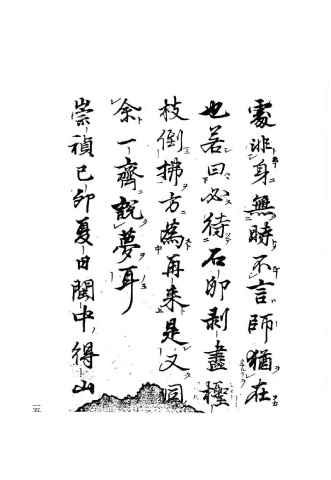 處非身無時不言師猶在
也若曰必待石卵剥盡極
枝倒拂方為再来是又同
余一齊説夢耳
崇禎己卯夏日閩中得山
一五